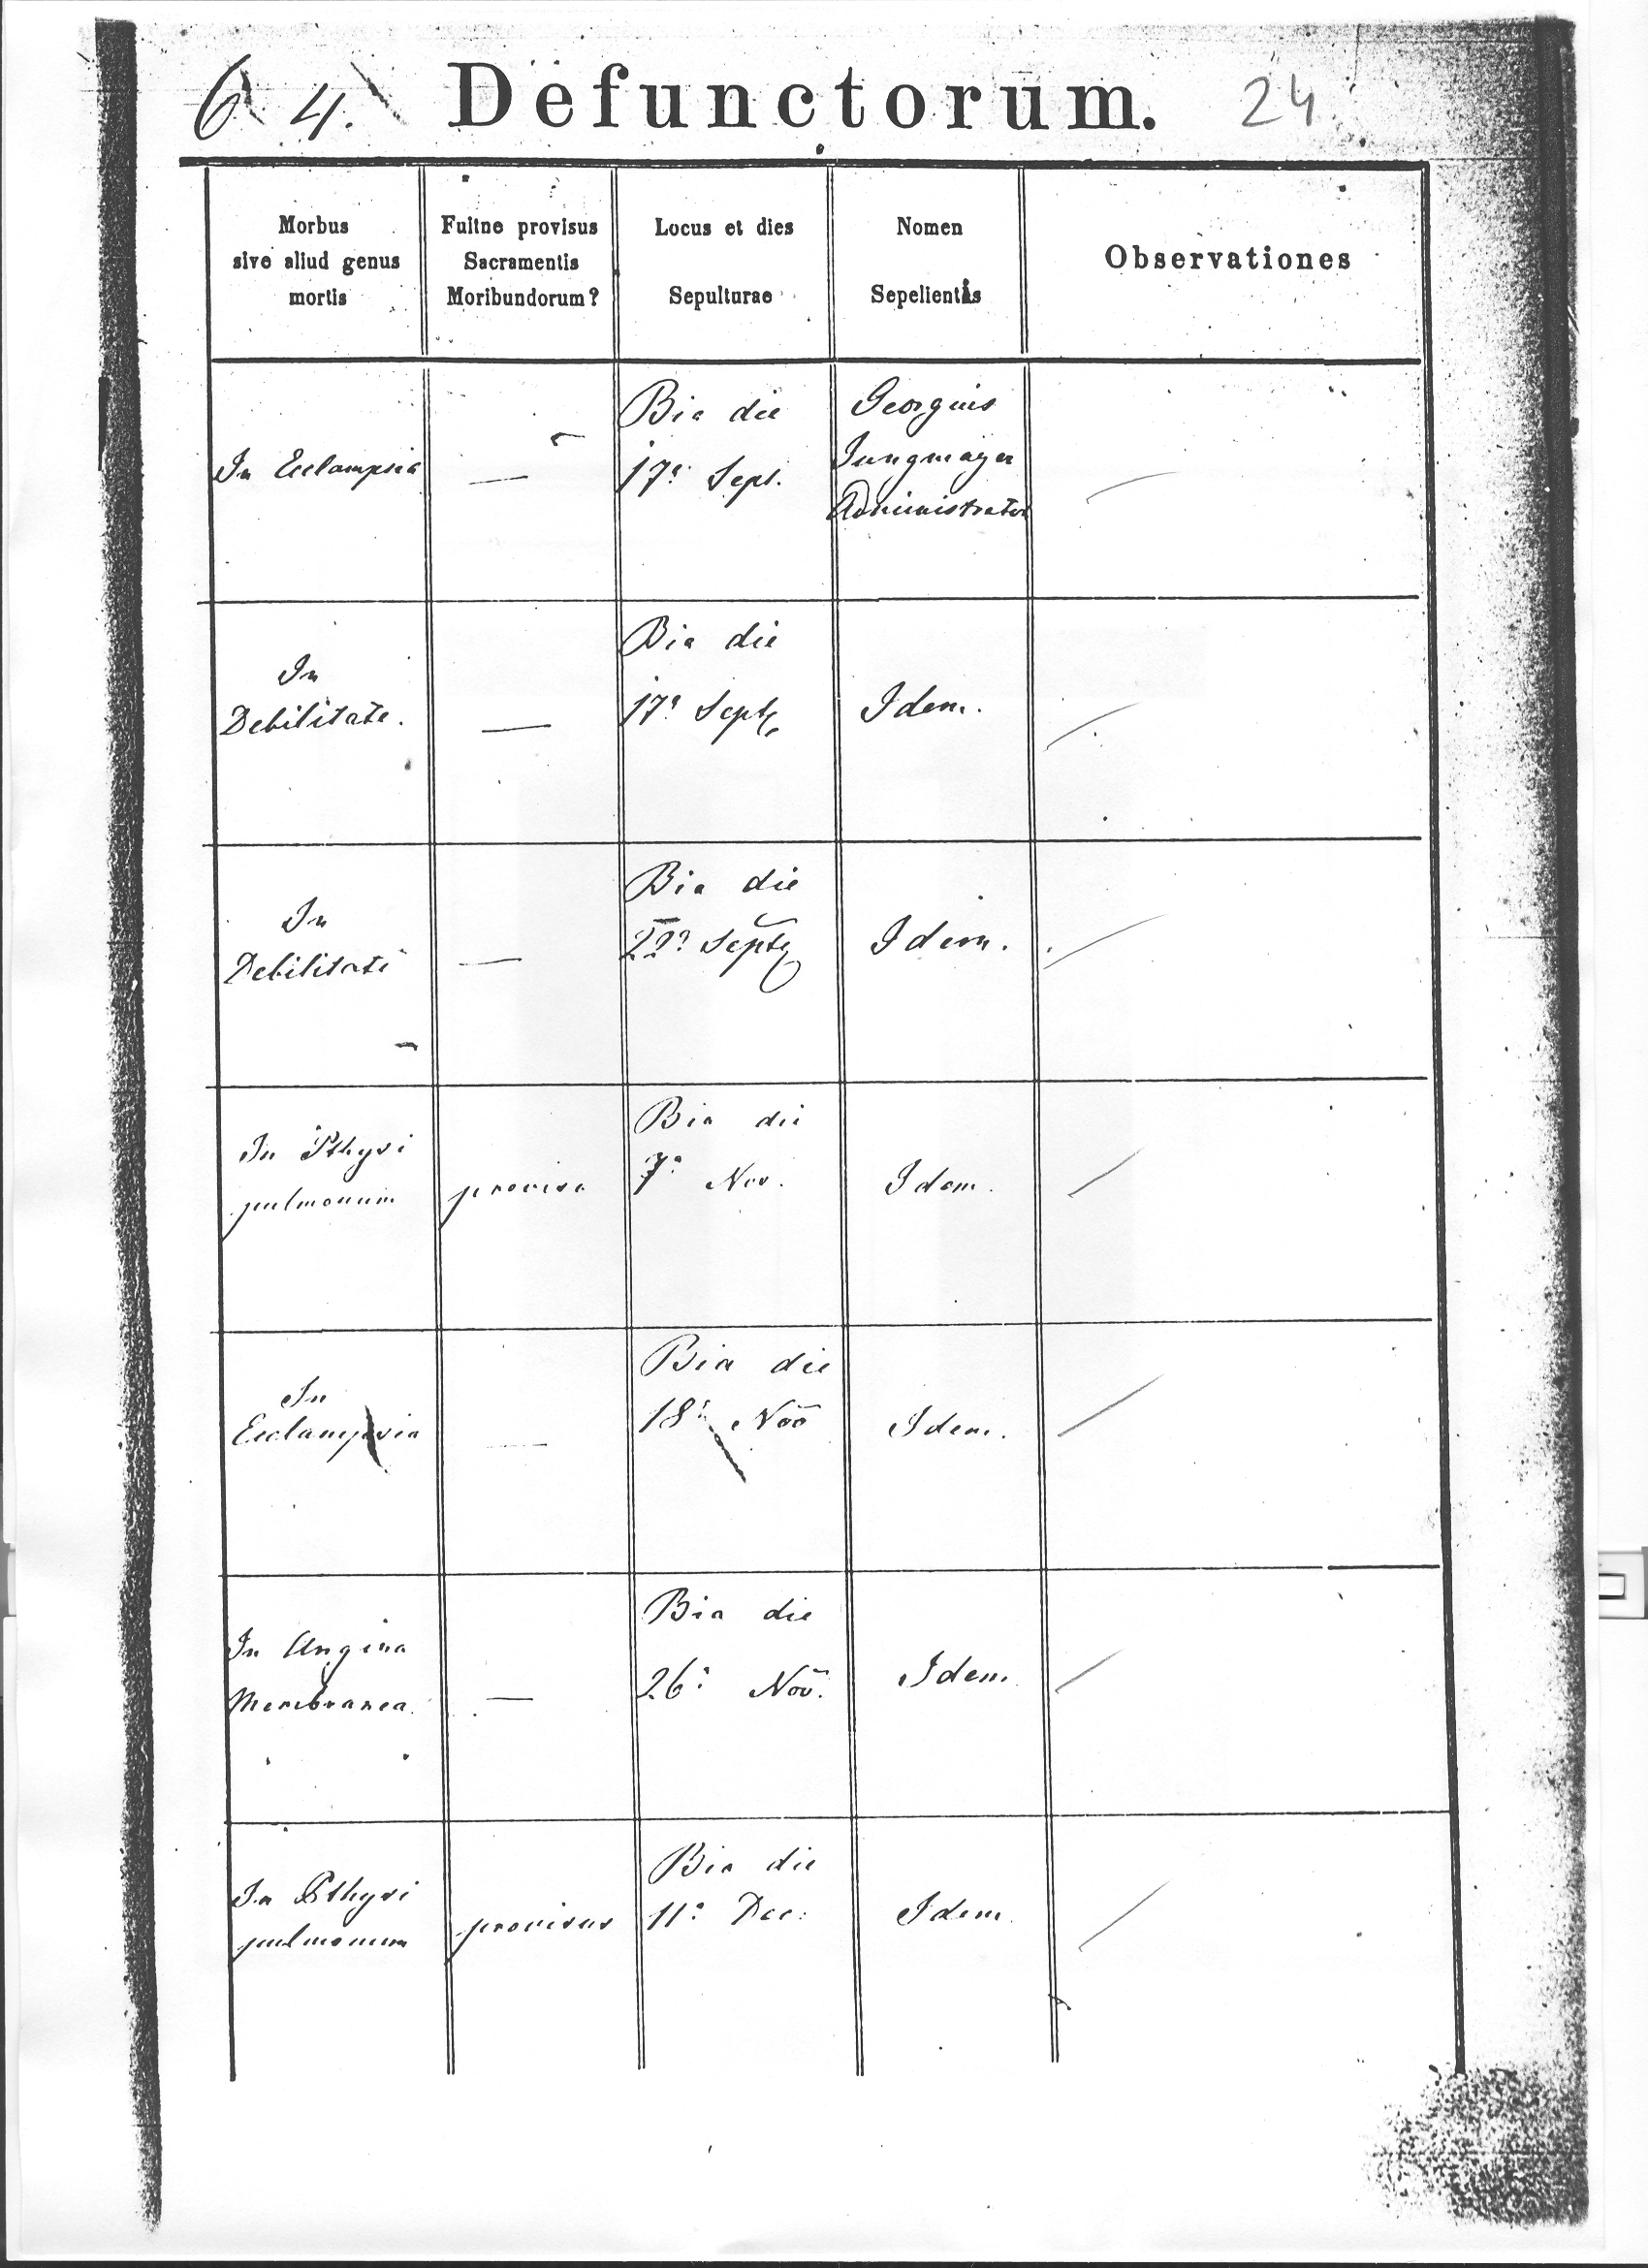 6 4. Defunctorum. 24
Morbus
sive aliud genus
mortis
Fuitne provisus
Sacramentis
Moribundorum?
Locus et dies
Sepulturae
Nomen
Sepelientis
Observationes
In Ecclampsia
—
Bia die
17ª Sept.
Georgius
Jungmayer
Administrator
In
Debilitate.
—
Bia die
17ª Sept
Idem.
In
Debilitate
—
Bia die
22ª Sept
Idem.
In Pthysi
pulmonum
provisa
Bia die
7ª Nov.
Idem.
In
Ecclampsia
—
Bia die
18ª Nov
Idem.
In Angina
Membranea.
—
Bia die
26ª Nov.
Idem
In Pthysi
pulmonum
provisus
Bia die
11ª Dec:
Idem.